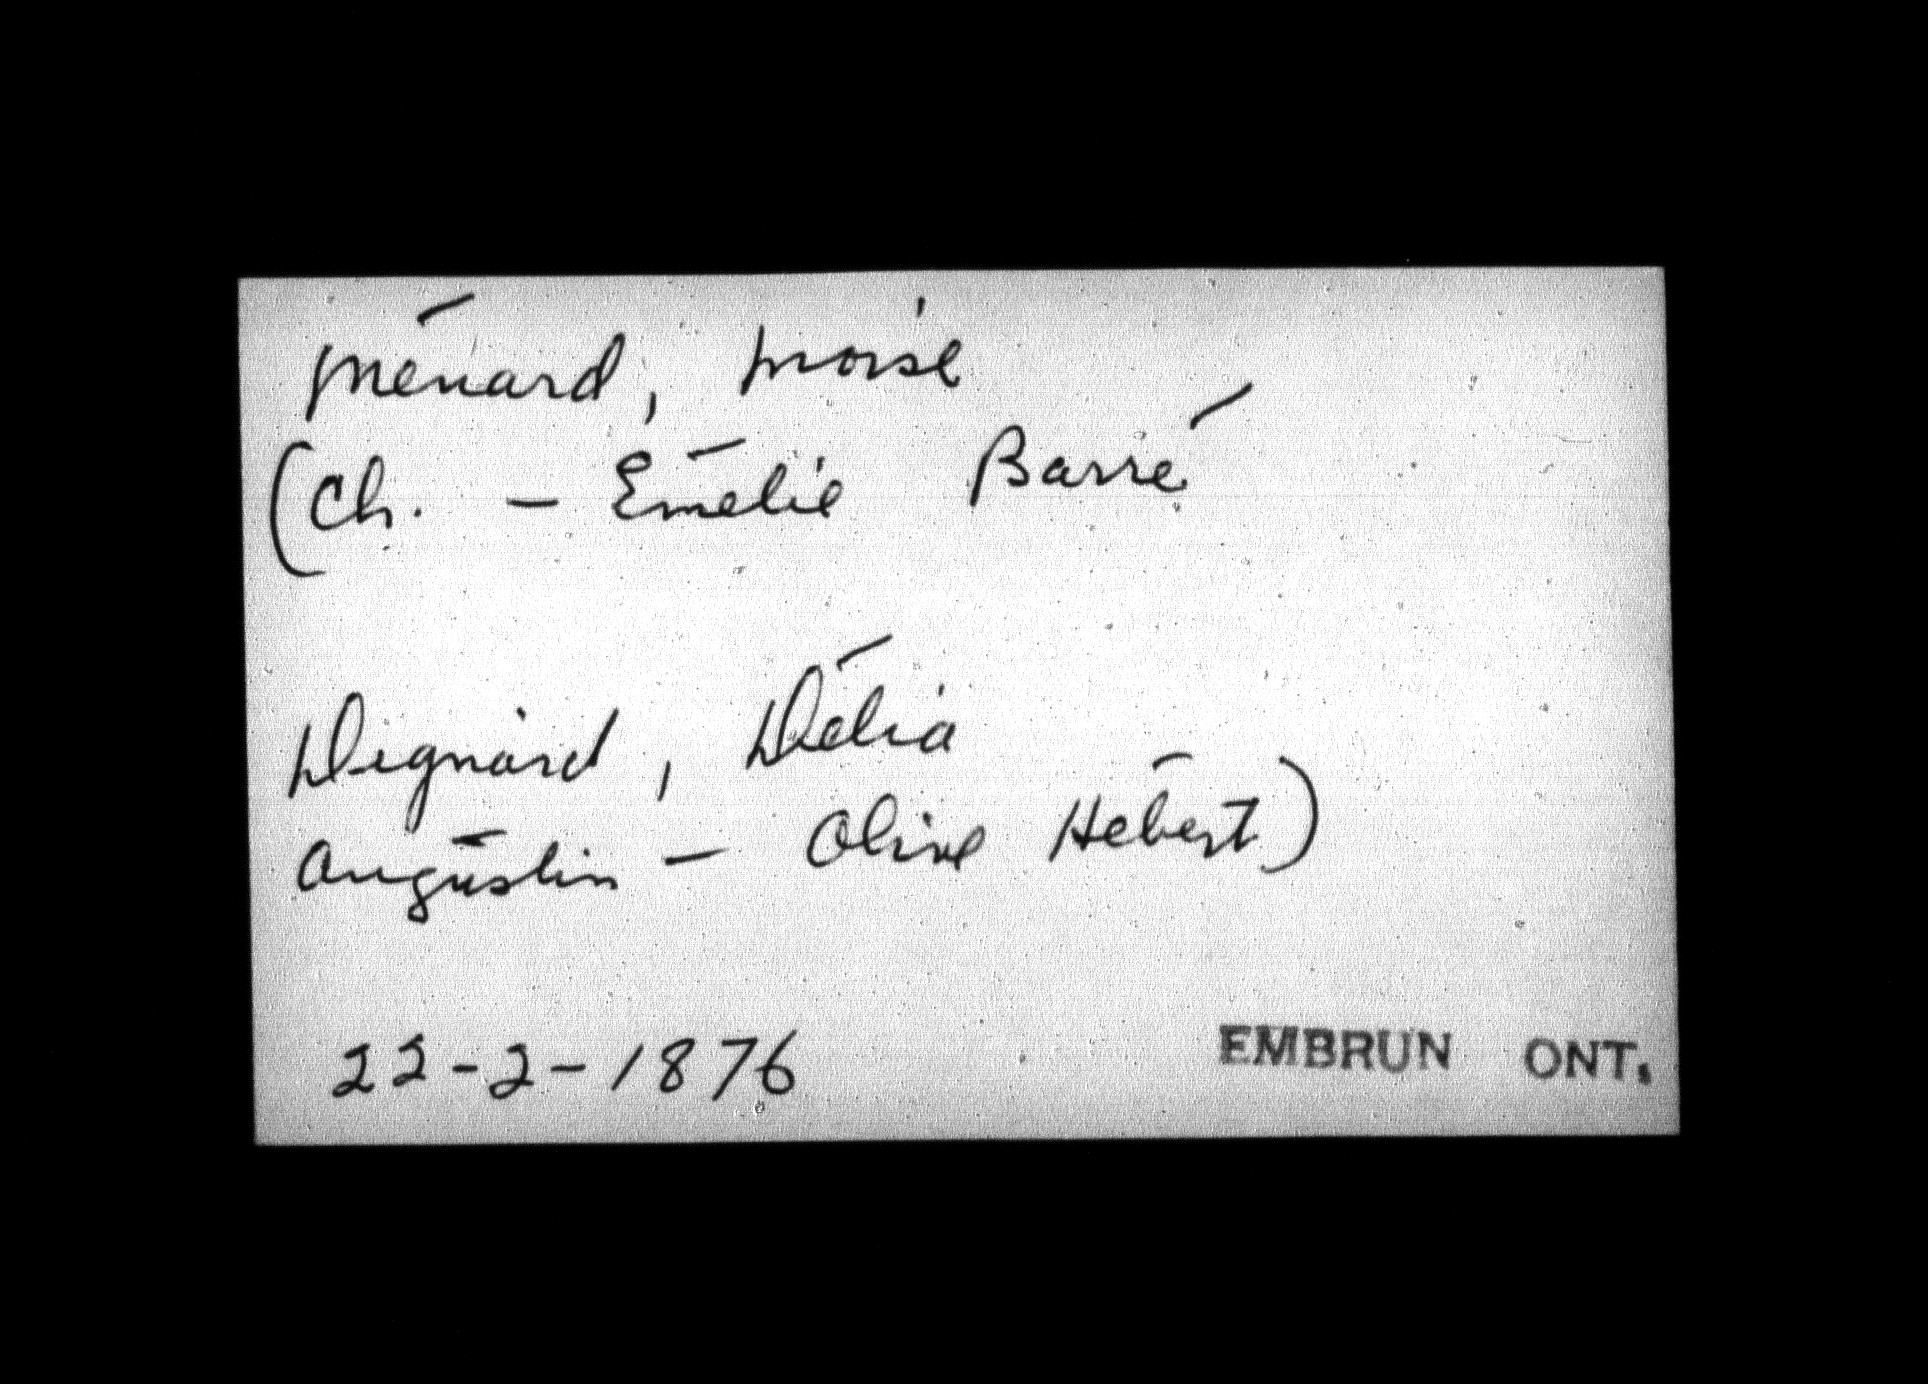 Ménard, Moise
(Ch. - Emélie Barré
Dignard, Délia
Augustin - Olive Hébert)
22-2-1876 EMBRUN ONT.